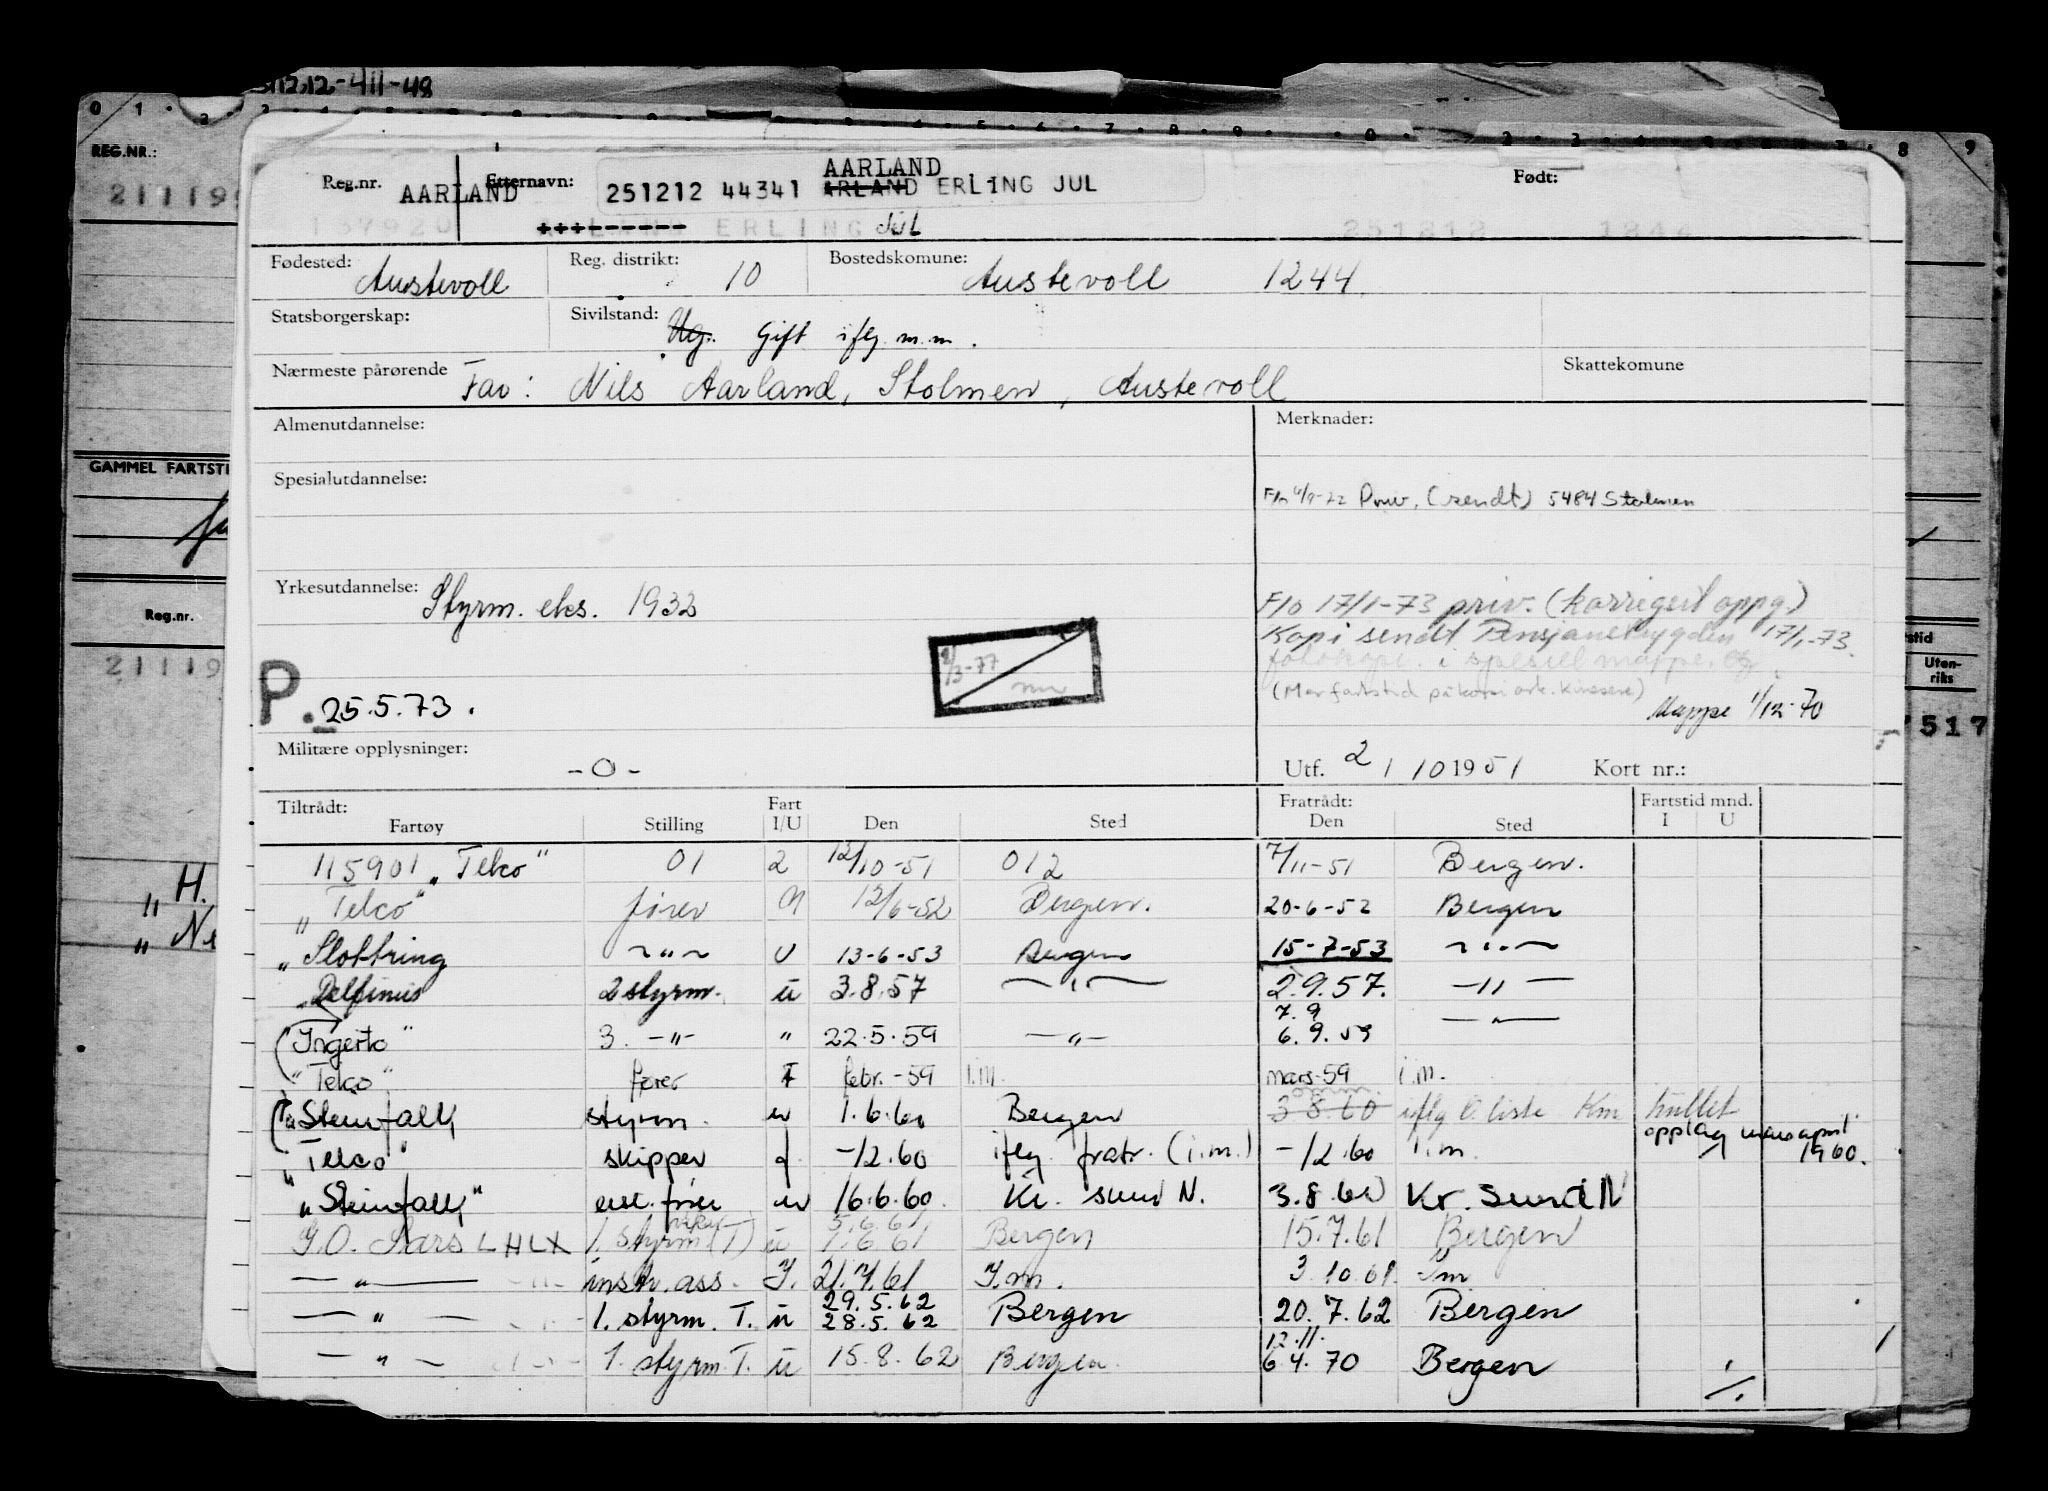 1212-411-48
REG.NR.:
21119
GAMMEL FARTSTI
Reg.nr.
21119
„ H.
„ Ne
stid
Uten-
riks
7517
AARLAND
Reg.nr. AARLAND Etternavn: 251212 44341 ARLAND ERLING JUL Født:
137920 ERLING Jul 251212
Fødested: Austevoll Reg. distrikt: 10 Bostedskomune: Austevoll 1244
Statsborgerskap: Sivilstand: Ug. Gift iflg. m.m.
Nærmeste pårørende Far: Nils Aarland, Stolmen, Austevoll Skattekomune
Almenutdannelse: Merknader:
Spesialutdannelse:
F/o 4/9-72 Priv. (sendt) 5484 Stolmen
Yrkesutdannelse: Styrm. eks. 1932
F/o 17/1-73 priv. (korrigert oppg.)
Kopi sendt Pensjonstrygden 17/1-73.
fotokopi i spesiell mappe.
(Mer fartstid på kort i ark. Kinesere)
1/3-77
P. 25.5.73.
Mappe 1/12-70
Militære opplysninger: -0-
Utf. 2/10 1951 Kort nr.:
Tiltrådt: Fart Fratrådt: Fartstid mnd.
Fartøy Stilling I/U Den Sted Den Sted I U
115901 „Telco" 01 2 12/10-51 012 7/11-51 Bergen.
„Telco" fører 12/6-52 Bergen. 20-6-52 Bergen
„Slottring ~"~ U 13-6-53 Bergen 15-7-53 ~"~
„Delfinus 2 styrm. u 3.8.57 —"— 2.9.57. —"—
7.9
„Ingerto" 3. —"— " 22.5.59 —"— 6.9.59 —"—
"Telco" fører febr.-59 i.m. mars-59 i.m.
"Steinfalk styrm. u 1.6.60 Bergen 3.8.60 iflg. liste Km hullet
opplag mars april
"Telco" skipper -12.60 iflg. fratr. (i.m.) -12.60 i.m. 1960.
"Steinfalk" fører u 16.6.60. Kr. sund N. 3.8.60 Kr. Sund N
5.6.61.
G.O. Sars LHLX 1. styrm (T) u 1.6.61 Bergen 15.7.61 Bergen
—"— instr. ass. I. 21.7.61 I.m. 3.10.61. I m
29.5.62
—"— 1. styrm. T. u 28.5.62 Bergen 20.7.62 Bergen
12.11.
—"— 1. styrm. T. u 15.8.62 Bergen. 6.4.70 Bergen